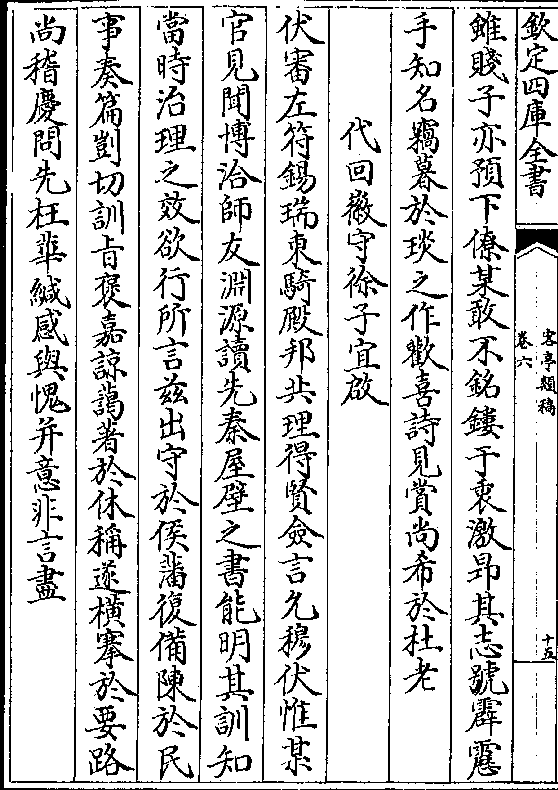 欽定四庫全書
客亭類稿
卷六
十五
雖賤子亦預下僚某敢不銘鏤于衷激昂其志號霹靂
手知名竊慕於琰之作歡喜詩見賞尚希於杜老
代回徽守徐子宜啟
伏審左符錫瑞東騎殿邦共理得賢僉言允穆伏惟某
官見聞博洽師友淵源讀先秦屋壁之書能明其訓知
當時治理之效欲行所言兹出守於侯藩復備陳於民
事奏篇剴切訓㫖褒嘉諒藹著於休稱遂横搴於要路
尚稽慶問先枉華緘感與愧并意非言盡